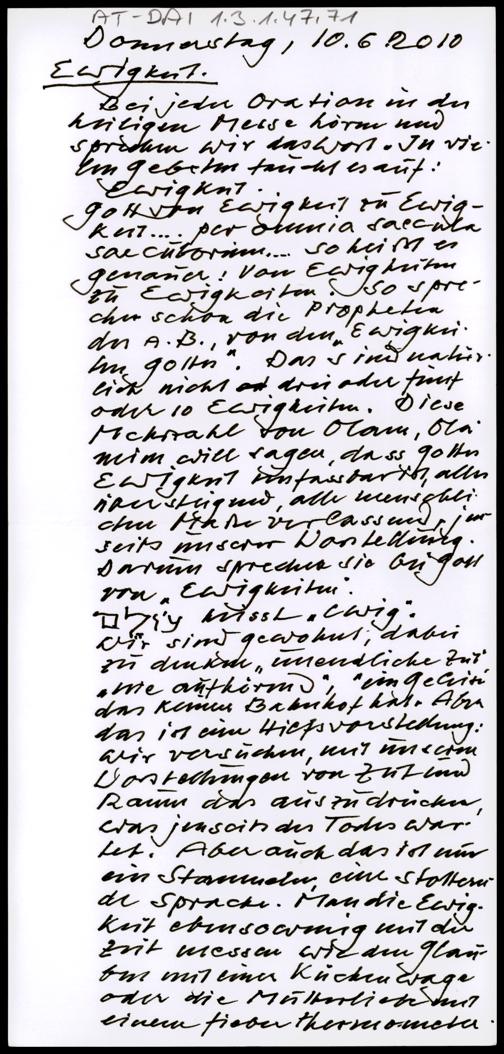 AT-DAI 1.3.1.47.71
Donnerstag, 10.6.2010
Ewigkeit.
Bei jeder Oration in der
heiligen Messe hören und
sprechen wir das Wort. In vie-
len Gebeten taucht es auf:
Ewigkeit.
Gott von Ewigkeit zu Ewig-
keit.... per omnia saecula
saeculorum.... so heisst es
genauer: Von Ewigkeiten
zu Ewigkeiten. So spre-
chen schon die Propheten
des A.B., von den „Ewigkei-
ten Gottes". Das sind natür-
lich nicht drei oder fünf
oder 10 Ewigkeiten. Diese
Mehrzahl von Olam, Ola-
mim will sagen, dass Gottes
Ewigkeit unfassbar ist, alles
übersteigend, alle menschli-
chen Maße verlassend, jen-
seits unserer Vorstellung.
Darum sprechen sie bei Gott
von „Ewigkeiten".
עולם heisst „Ewig".
Wir sind gewohnt, dabei
zu denken „unendliche Zeit"
„nie aufhörend", "ein Geleise
das keinen Bahnhof hat. Aber
das ist eine Hilfsvorstellung:
wir versuchen, mit unseren
Vorstellungen von Zeit und
Raum das auszudrücken,
was jenseits des Todes war-
tet. Aber auch das ist nur
ein Stammeln, eine stottern-
de Sprache. Man die Ewig-
keit ebensowenig mit der
Zeit messen wie den Glau-
ben mit einer Küchenwage
oder die Mutterliebe mit
einem Fieberthermometer.